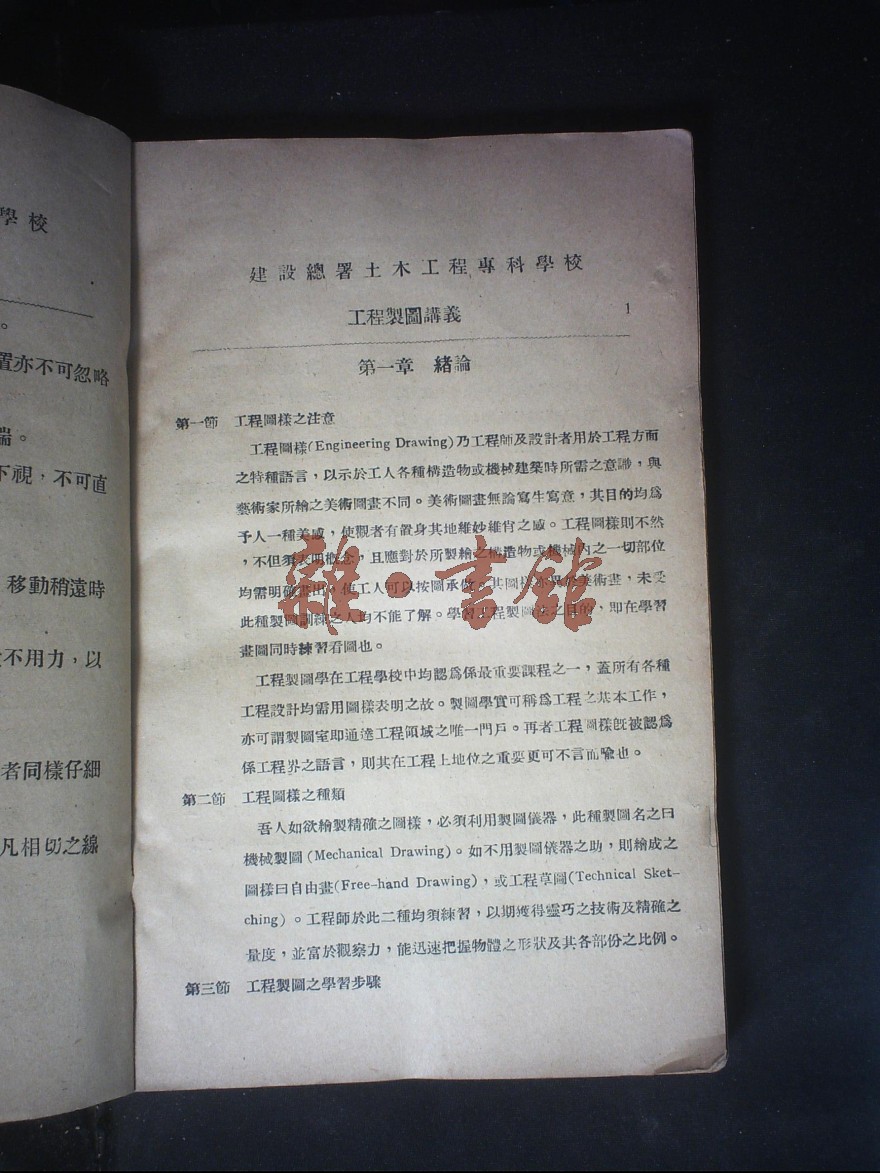 學校
。
置亦不可忽略
端。
下視，不可直
移動稍遠時
不用力，以
者同樣仔細
凡相切之線
建設總署土木工程專科學校
工程製圖講義
1
第一章 緒論
第一節 工程圖樣之注意
工程圖樣(Engineering Drawing)乃工程師及設計者用於工程方面
之特種語言，以示於工人各種構造物或機械建築時所需之意識，與
藝術家所繪之美術圖畫不同。美術圖畫無論寫生寫意，其目的均爲
予人一種美感，使觀者有置身其地維妙維肖之感。工程圖樣則不然
，不但須表明概念，且應對於所製繪之構造物或機械內之一切部位
均需明確畫出，使工人可以按圖承做。其圖樣亦異於美術畫，未受
此種製圖訓練之人均不能了解。學習工程製圖法之目的，即在學習
畫圖同時練習看圖也。
工程製圖學在工程學校中均認爲係最重要課程之一，蓋所有各種
工程設計均需用圖樣表明之故。製圖學實可稱爲工程之基本工作，
亦可謂製圖室即通達工程領域之唯一門戶。再者工程圖樣旣被認爲
係工程界之語言，則其在工程上地位之重要更可不言而喩也。
第二節 工程圖樣之種類
吾人如欲繪製精確之圖樣，必須利用製圖儀器，此種製圖名之曰
機械製圖(Mechanical Drawing)。如不用製圖儀器之助，則繪成之
圖樣曰自由畫(Free-hand Drawing)，或工程草圖(Technical Sket-
ching)。工程師於此二種均須練習，以期獲得靈巧之技術及精確之
量度，並富於觀察力，能迅速把握物體之形狀及其各部份之比例。
第三節 工程製圖之學習步驟
雜·書館